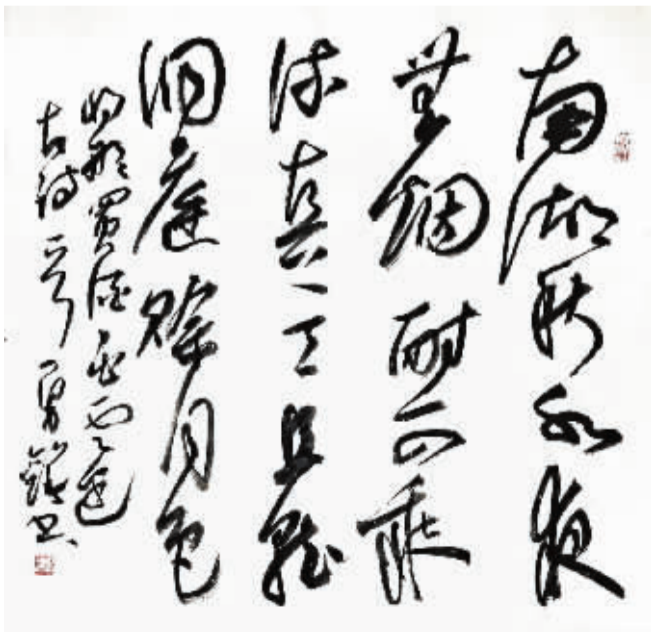 南湖秋水夜
無烟耐可乘
流直上天且就
洞庭賒月色
将船買酒白雲邊
古诗一首 勇 书